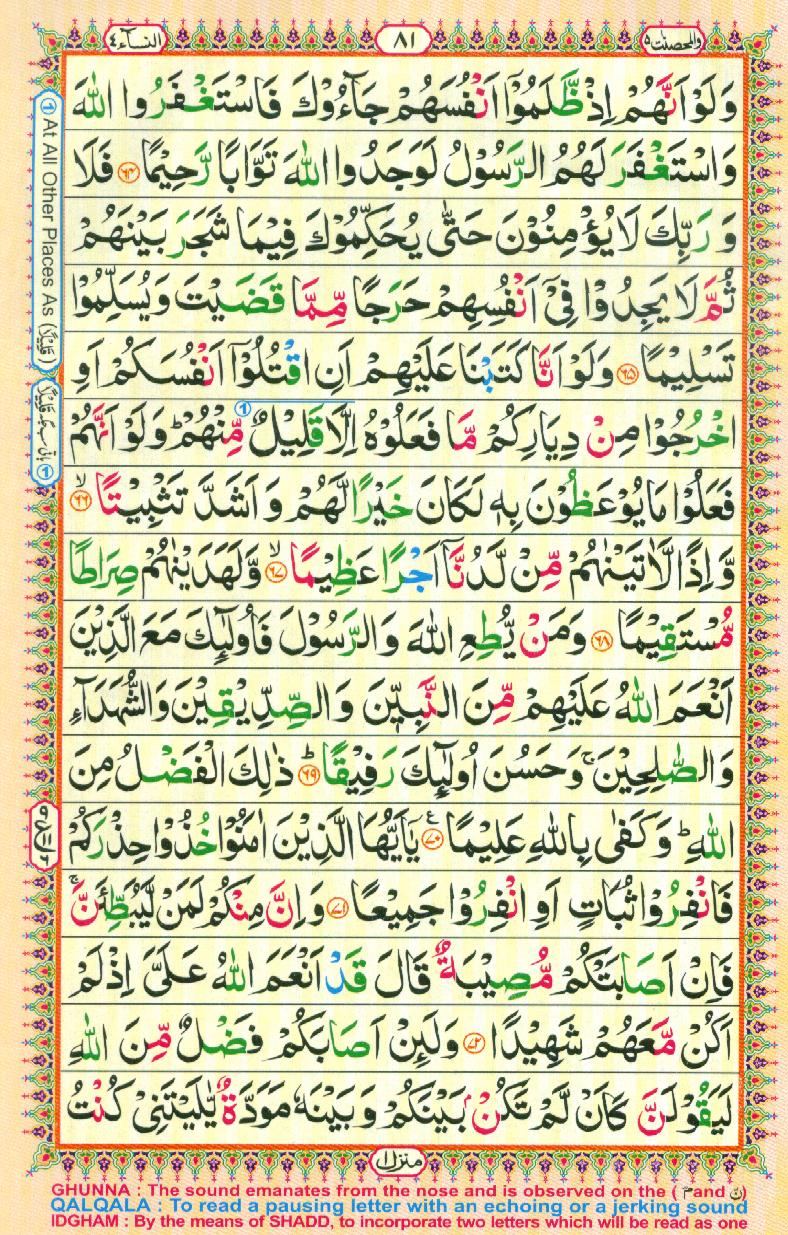 والمحصنت ۵
۸۱
النساء ۴
وَلَوْ اَنَّهُمْ اِذْ ظَّلَمُوْٓا اَنْفُسَهُمْ جَآءُوْكَ فَاسْتَغْفَرُوا اللّٰهَ
وَاسْتَغْفَرَ لَهُمُ الرَّسُوْلُ لَوَجَدُوا اللّٰهَ تَوَّابًا رَّحِيْمًا ﴿۶۴﴾ فَلَا
وَ رَبِّكَ لَا يُؤْمِنُوْنَ حَتّٰى يُحَكِّمُوْكَ فِيْمَا شَجَرَ بَيْنَهُمْ
ثُمَّ لَا يَجِدُوْا فِيْٓ اَنْفُسِهِمْ حَرَجًا مِّمَّا قَضَيْتَ وَيُسَلِّمُوْا
تَسْلِيْمًا ﴿۶۵﴾ وَلَوْ اَنَّا كَتَبْنَا عَلَيْهِمْ اَنِ اقْتُلُوْٓا اَنْفُسَكُمْ اَوِ
اخْرُجُوْا مِنْ دِيَارِكُمْ مَّا فَعَلُوْهُ اِلَّا قَلِيْلٌ مِّنْهُمْ ؕ وَلَوْ اَنَّهُمْ
فَعَلُوْا مَا يُوْعَظُوْنَ بِهٖ لَكَانَ خَيْرًا لَّهُمْ وَ اَشَدَّ تَثْبِيْتًا ۙ﴿۶۶﴾
وَّ اِذًا لَّاٰتَيْنٰهُمْ مِّنْ لَّدُنَّآ اَجْرًا عَظِيْمًا ۙ﴿۶۷﴾ وَّلَهَدَيْنٰهُمْ صِرَاطًا
مُّسْتَقِيْمًا ﴿۶۸﴾ وَمَنْ يُّطِعِ اللّٰهَ وَ الرَّسُوْلَ فَاُولٰٓئِكَ مَعَ الَّذِيْنَ
اَنْعَمَ اللّٰهُ عَلَيْهِمْ مِّنَ النَّبِيّٖنَ وَ الصِّدِّيْقِيْنَ وَالشُّهَدَآءِ
وَ الصّٰلِحِيْنَ ۚ وَحَسُنَ اُولٰٓئِكَ رَفِيْقًا ؕ﴿۶۹﴾ ذٰلِكَ الْفَضْلُ مِنَ
اللّٰهِ ؕ وَ كَفٰى بِاللّٰهِ عَلِيْمًا ﴿۷۰﴾ ع يٰٓاَيُّهَا الَّذِيْنَ اٰمَنُوْا خُذُوْا حِذْرَكُمْ
فَانْفِرُوْا ثُبَاتٍ اَوِ انْفِرُوْا جَمِيْعًا ﴿۷۱﴾ وَ اِنَّ مِنْكُمْ لَمَنْ لَّيُبَطِّئَنَّ ۚ
فَاِنْ اَصَابَتْكُمْ مُّصِيْبَةٌ قَالَ قَدْ اَنْعَمَ اللّٰهُ عَلَيَّ اِذْ لَمْ
اَكُنْ مَّعَهُمْ شَهِيْدًا ﴿۷۲﴾ وَلَئِنْ اَصَابَكُمْ فَضْلٌ مِّنَ اللّٰهِ
لَيَقُوْلَنَّ كَاَنْ لَّمْ تَكُنْۢ بَيْنَكُمْ وَ بَيْنَهٗ مَوَدَّةٌ يّٰلَيْتَنِيْ كُنْتُ
① At All Other Places As (قَلِيْلًا)
منزل ۱
GHUNNA : The sound emanates from the nose and is observed on the ( م and ن)
QALQALA : To read a pausing letter with an echoing or a jerking sound
IDGHAM : By the means of SHADD, to incorporate two letters which will be read as one